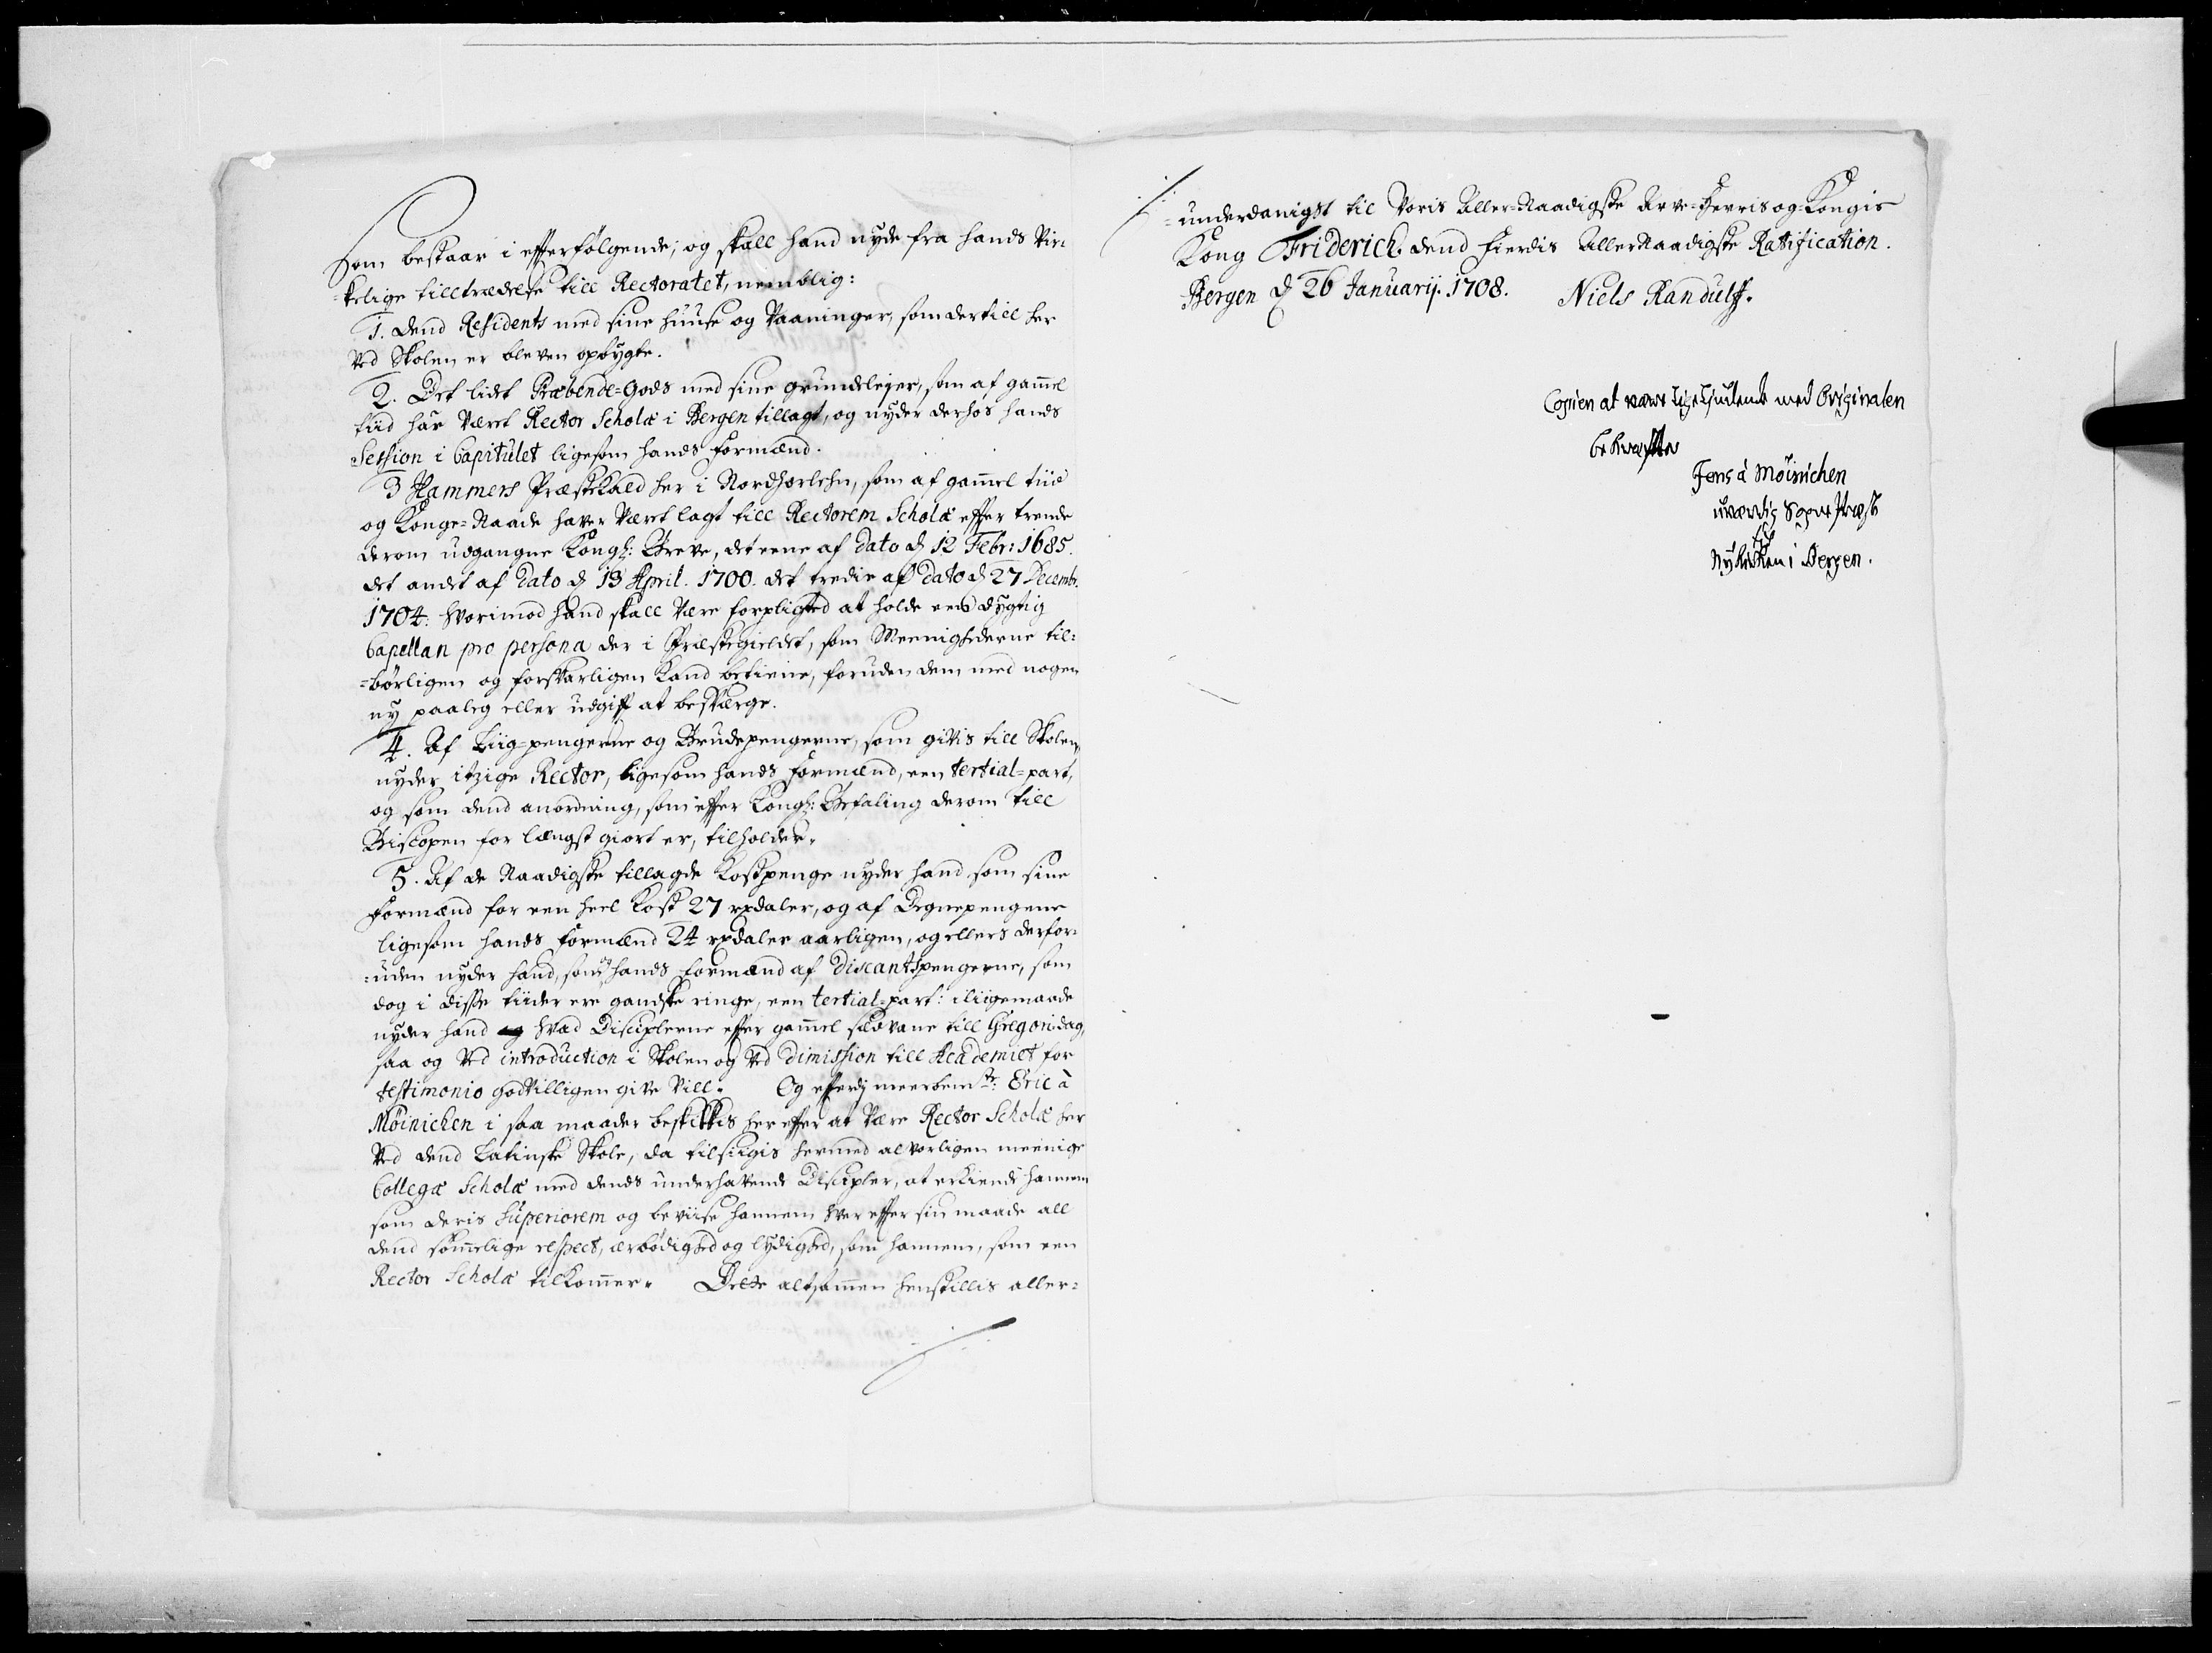 Som bestaar i efterfølgende; og skall hand nyde fra hands vir-
kelige tilltrædelse till Rectoratet, nemblig:
1. dend Residents med sine huuse og Vaaninger, som dertill her
ved Skolen er bleven opbygte.
2. Det lidet Præbende-Gods med sine grundeleyer, som af gam̄el
tiid har været Rector Scholæ i Bergen tillagt, og nyder derhos hands
Session i Capitulet ligesom hands formænd.
3 Hammers Præstekald her i Nordhorlehn, som af gam̄el tiid
og Konge-Naade haver været lagt till Rectorem Scholæ efter trende
derom udgangne Kongl: Breve, det eene af dato d 12 Febr: 1685.
det andet af dato d 13 April. 1700. det tredie af dato d 27 Decembr.
1704: hvorimod hand skall være forpligted at holde een dygtig
Capellan pro persona der i Præstegieldet, som Meenighederne til-
=børligen og forsvarligen kand betiene, foruden dem med nogen
ny paaleg eller udgift at besværge.
4. Af Liig-pengerne og Brudepengerne, som givis till Skolen,
nyder itzige Rector, ligesom hands formænd, een tertial-part,
og som dend anordning, som efter Kongl: Befaling derom till
Biscopen for længst giort er, tilholder.
5. Af de Naadigste tillagde Kostpenge nyder hand, som sine
formænd for een heel Kost 27 rxdaler, og af Degnepengene
ligesom hands formænd 24 rxdaler aarligen, og ellers derfor-
=uden nyder hand, som og hands formænd af Discantspengerne, som
dog i disse tiider ere gandske ringe, een tertial-part: iliigemaade
nyder hand hvad Disciplerne efter gam̄el sædvane till Gregori dag,
saa og ved introduction i Skolen og ved dimission till Academiet for
testimonio godvilligen give vill. Og efterdj meerbem.te Eric à
Möinichen i saa maader beskikkis herefter at være Rector Scholæ her
ved dend Latinske Skole, da tilsiigis hermed alvorligen meenige
Collegæ Scholæ med dends underhavende Discipler, at erkiende hannem
som deris Superiorem og beviise hannem hver efter sin maade all
dend søm̄elige respect, ærbødighed og lydighed, som hannem, som een
Rector Scholæ tilkom̄er. Dette altsam̄en henstillis aller-
=underdanigst til Voris Aller-Naadigste Arve-Herris og Kongis
Kong Friderich dend fierdis AllerNaadigste Ratification.
Bergen d 26 Januarij. 1708. Niels Randulff.
Copien at være Ligelydende med Originalen
bekræfter
Jens à Möinichen
uværdig Sogne Præst
til
Nykirken i Bergen.